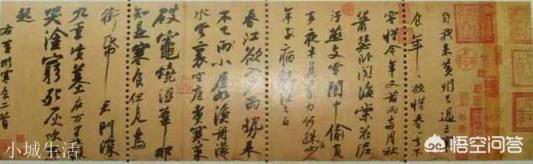 自我来黄州已過三寒
食年年欲惜春春去不
容惜今年又苦雨兩月秋
蕭瑟卧聞海棠花泥
汙燕支雪闇中偷負
去夜半真有力何殊少
年子病起頭已白
春江欲入戶雨勢来
不已雨小屋如漁舟濛濛
水雲裏空庖煮寒菜
破竈燒濕葦那
知是寒食但見烏
銜帋君門深
九重墳墓在万里也擬
哭塗窮死灰吹不
起
右黄州寒食二首
小城生活
悟空问答